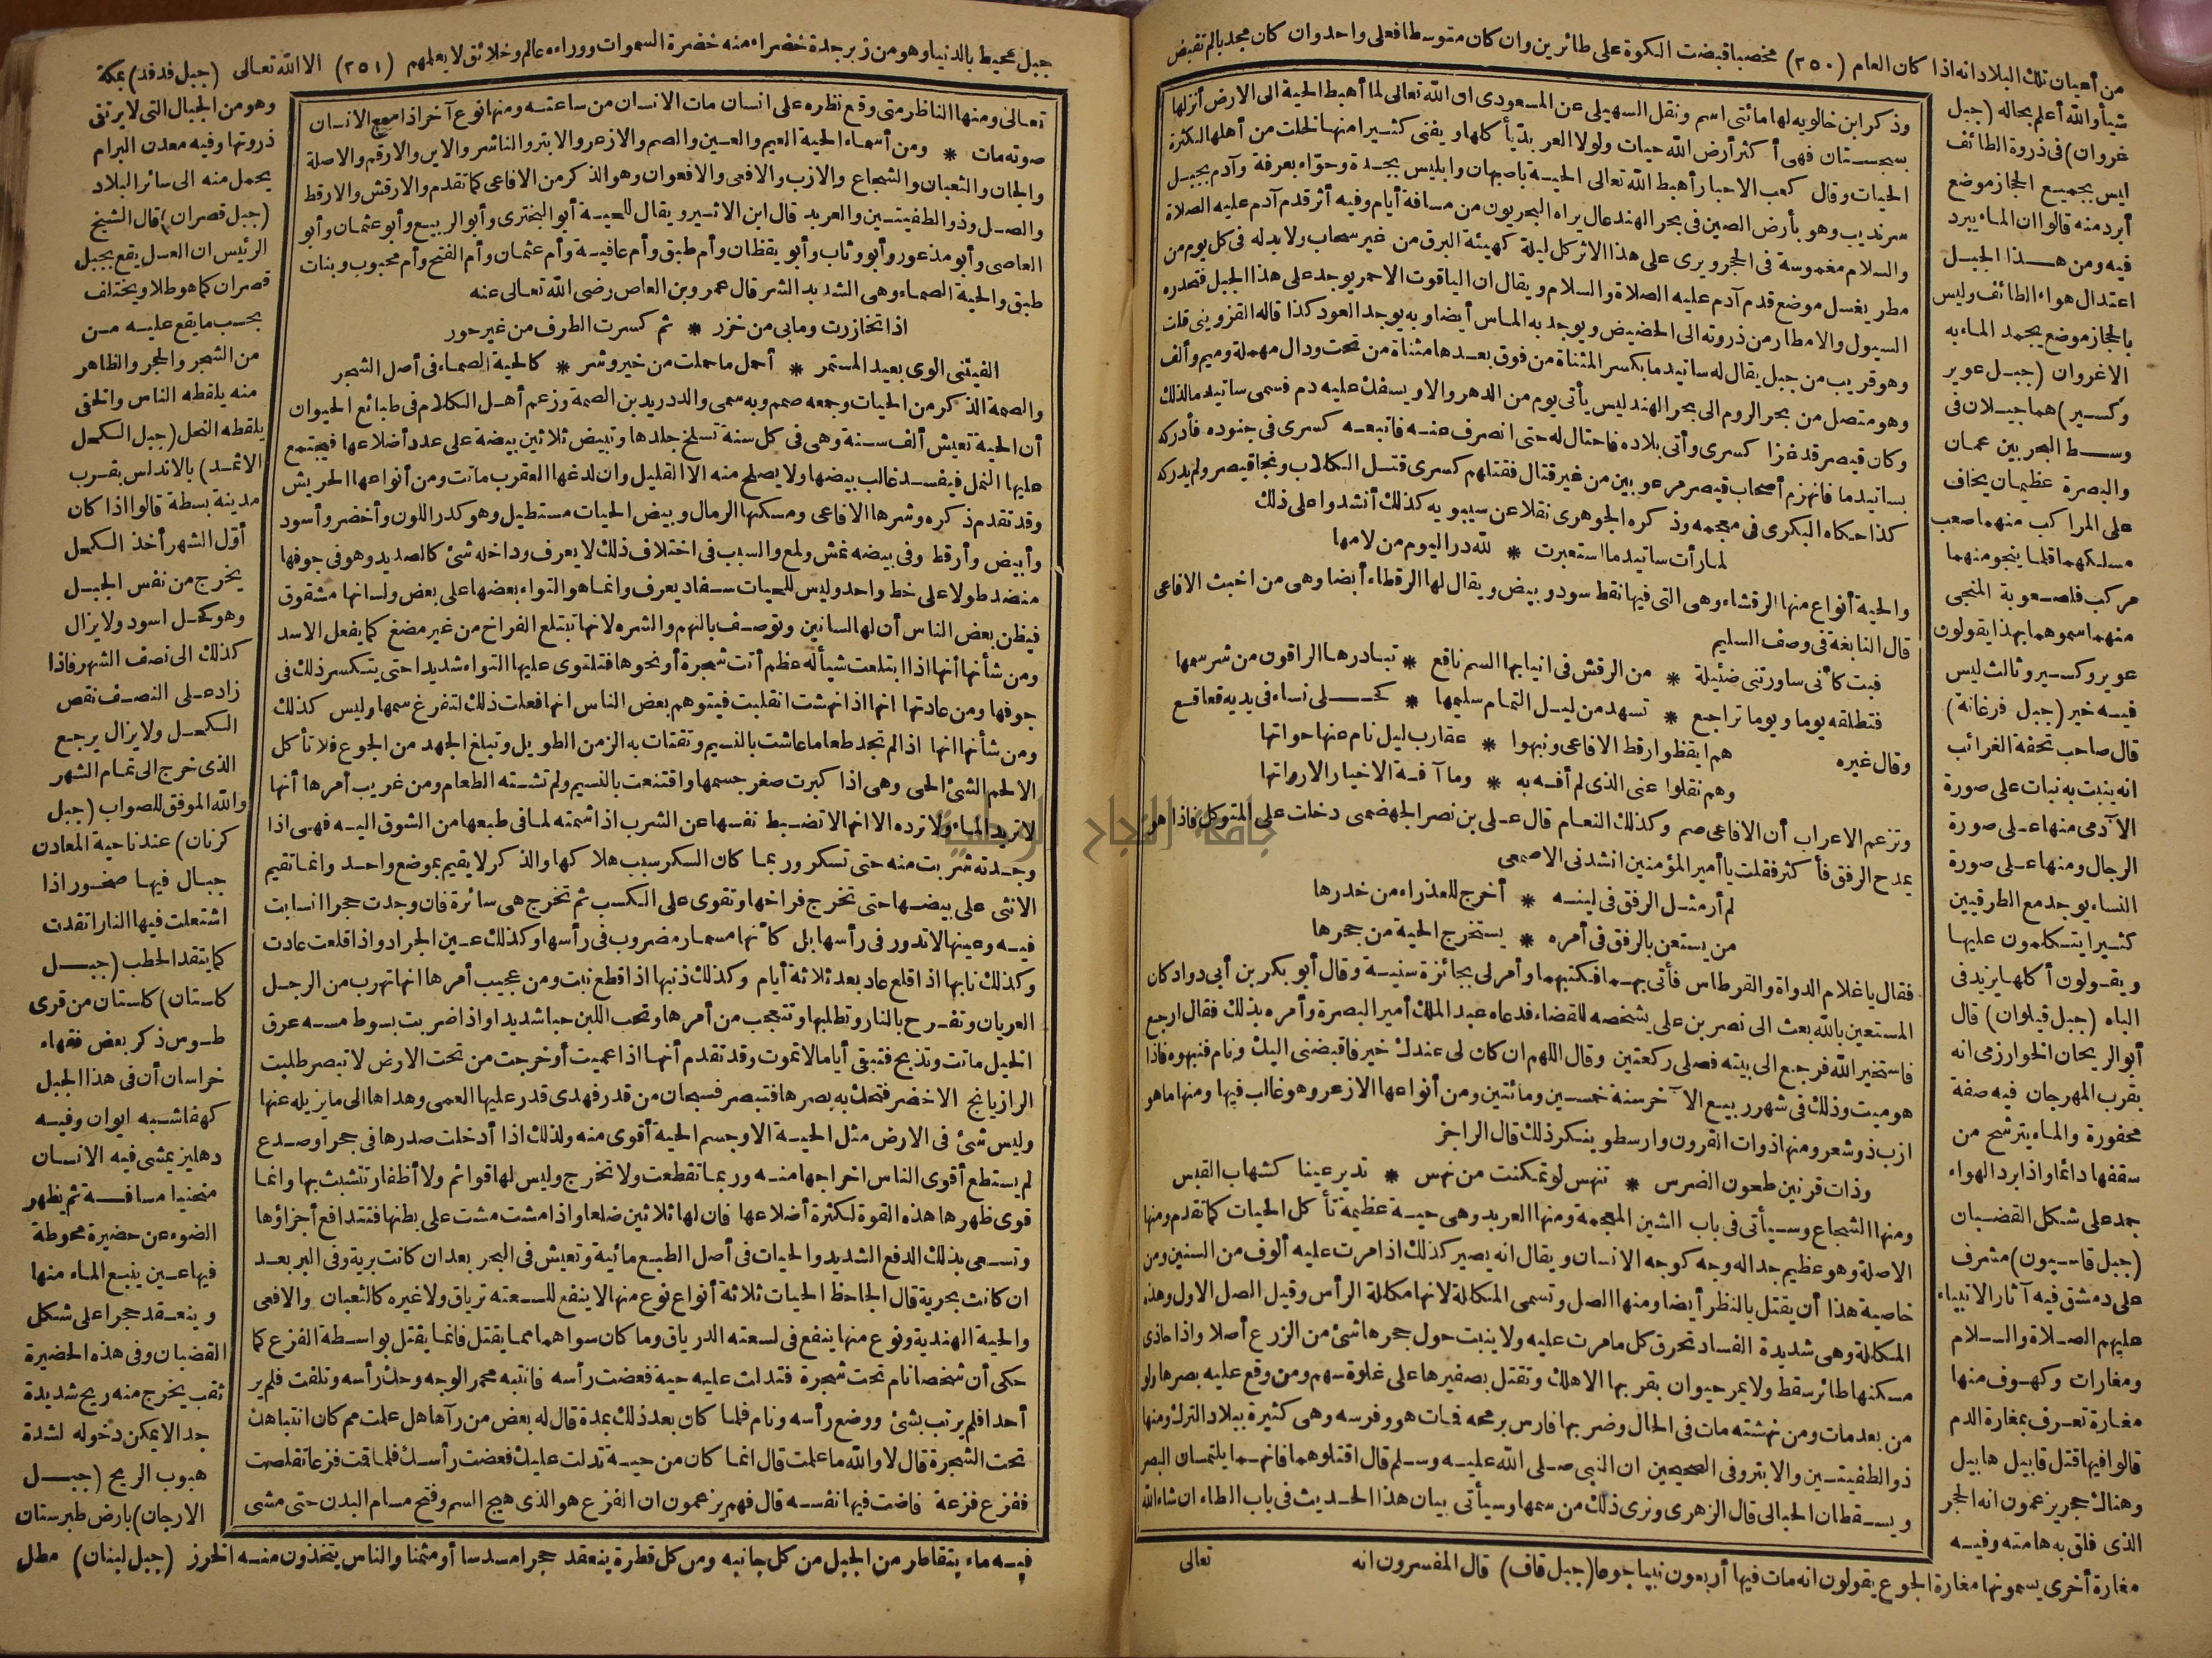 من أعيان تلك البلاد انه اذا كان العام (٢٥٠) مخصبا قبضت الكوة على طائرين وان كان متوسطا فعلى واحد وان كان مجدبا لم تقبض
شيأ والله أعلم بحاله (جبل
غزوان) في ذروة الطائف
ليس بجميع الحجاز موضع
أبرد منه قالوا ان الماء يبرد
فيه ومن هذا الجبل
اعتدال هواء الطائف وليس
بالحجاز موضع يجمد الماء به
الاغروان (جبل عوير
وكسير) هما جبلان في
وسط البحر بين عمان
والبصرة عظيمان يخاف
على المراكب منهما صعب
مسلكهما قلما ينجو منهما
مركب فلصعوبة المنجى
منهما سموهما بهذا يقولون
عوير وكسير وثالث ليس
فيه خير (جبل فرغانة)
قال صاحب تحفة الغرائب
انه ينبت به نبات على صورة
الآدمى منها على صورة
الرجال ومنها على صورة
النساء يوجد مع الطرقيين
كثيرا يتكلمون عليها
ويقولون أكلها يزيد في
الباه (جبل قيلوان) قال
أبو الريحان الخوارزمى انه
بقرب المهرجان فيه صفة
محفورة والماء يترشح من
سقفها دائما واذا برد الهواء
جمد على شكل القضبان
(جبل قاسيون) مشرف
على دمشق فيه آثار الانبياء
عليهم الصلاة والسلام
ومغارات وكهوف منها
مغارة تعرف بمغارة الدم
قالوا فيها قتل قابيل هابيل
وهناك حجر يزعمون انه الحجر
الذى فلق به هامته وفيه
مغارة أخرى يسمونها مغارة الجوع يقولون انه مات فيها أربعون نبيا جوعا (جبل قاف) قال المفسرون انه
وذكر ابن خالويه لها مائتى اسم ونقل السهيلى عن المسعودى ان الله تعالى لما أهبط الحية الى الارض أنزلها
بسجستان فهى أكثر أرض الله حيات ولولا العربد يأكلها ويفنى كثيرا منها لخلت من أهلها لكثرة
الحيات وقال كعب الاحبار أهبط الله تعالى الحية باصبهان وابليس بجدة وحواء بعرفة وآدم بجبل
سرنديب وهو بأرض الصين في بحر الهند عال يراه البحريون من مسافة أيام وفيه أثر قدم آدم عليه الصلاة
والسلام مغموسة في الحجر ويرى على هذا الاثر كل ليلة كهيئة البرق من غير سحاب ولا بد له في كل يوم من
مطر يغسل موضع قدم آدم عليه الصلاة والسلام ويقال ان الياقوت الاحمر يوجد على هذا الجبل فتحدره
السيول والامطار من ذروته الى الحضيض ويوجد به الماس أيضا وبه يوجد العود كذا قاله القزوينى قلت
وهو قريب من جبل يقال له ساتيدما بكسر المثناة من فوق بعدها مثناة من تحت ودال مهملة وميم وألف
وهو متصل من بحر الروم الى بحر الهند ليس يأتى يوم من الدهر والا ويسفك عليه دم فسمى ساتيدما لذلك
وكان قيصر قد غزا كسرى وأتى بلاده فاحتال له حتى انصرف عنه فاتبعه كسرى في جنوده فأدركه
بساتيدما فانهزم أصحاب قيصر مرعوبين من غير قتال فقتلهم كسرى قتل الكلاب ونجا قيصر ولم يدركه
كذا حكاه البكرى في معجمه وذكره الجوهرى نقلا عن سيبويه كذلك أنشدوا على ذلك
لما رأت ساتيدما استعبرت * لله در اليوم من لامها
والحية أنواع منها الرقشاء وهى التى فيها نقط سود وبيض ويقال لها الرقطاء أيضا وهى من اخبث الافاعى
قال النابغة في وصف السليم
فبت كأنى ساورتنى ضئيلة * من الرقش في انيابها السم ناقع * تبادرها الراقون من شر سمها
فتطلقه يوما ويوما تراجع * تسهد من ليل التمام سليمها * كحلى نساء في يديه قعاقع
وقال غيره
هم ايقظوا رقط الافاعى ونبهوا * عقارب ليل نام عنها حواتها
وهم نقلوا عنى الذى لم أفه به * وما آفة الاخبار الا رواتها
وتزعم الاعراب أن الافاعى صم وكذلك النعام قال على بن نصر الجهضمى دخلت على المتوكل فاذا هو
يمدح الرفق فأكثر فقلت يا أمير المؤمنين انشدنى الاصمعى
لم أر مثل الرفق في لينه * أخرج للعذراء من خدرها
من يستعن بالرفق في أمره * يستخرج الحية من جحرها
فقال يا غلام الدواة والقرطاس فأتى بهما فكتبهما وأمر لى بجائزة سنية وقال أبو بكر بن أبى دواد كان
المستعين بالله بعث الى نصر بن على يشخصه للقضاء فدعاه عبد الملك أمير البصرة وأمره بذلك فقال ارجع
فاستخير الله فرجع الى بيته فصلى ركعتين وقال اللهم ان كان لى عندك خير فاقبضنى اليك ونام فنبهوه فاذا
هو ميت وذلك في شهر ربيع الآخر سنة خمسين ومائتين ومن أنواعها الازعر وهو غالب فيها ومنها ما هو
ازب ذو شعر ومنها ذوات القرون وارسطو ينكر ذلك قال الراجز
وذات قرنين طحون الضرس * تنهس لو تمكنت من نهس * تدير عينا كشهاب القبس
ومنها الشجاع وسيأتى في باب الشين المعجمة ومنها العربد وهى حية عظيمة تأكل الحيات كما تقدم ومنها
الاصلة وهو عظيم جدا له وجه كوجه الانسان ويقال انه يصير كذلك اذا مرت عليه ألوف من السنين ومن
خاصية هذا أن يقتل بالنظر أيضا ومنها الصل وتسمى المكللة لانها مكللة الرأس وقيل الصل الاول وهذه
المكللة وهى شديدة الفساد تحرق كل ما مرت عليه ولا ينبت حول جحرها شئ من الزرع أصلا واذا حاذى
مسكنها طائر سقط ولا يمر حيوان بقربها الا هلك وتقتل بصفيرها على غلوة سهم ومن وقع عليه بصرها ولو
من بعد مات ومن نهشته مات في الحال وضربها فارس برمحه فمات هو وفرسه وهى كثيرة ببلاد الترك ومنها
ذو الطفيتين والابتر وفي الصحيحين ان النبى صلى الله عليه وسلم قال اقتلوهما فانهما يلتمسان البصر
ويسقطان الحبالى قال الزهرى ونرى ذلك من سمها وسيأتى بيان هذا الحديث في باب الطاء ان شاء الله
تعالى
جبل محيط بالدنيا وهو من زبرجدة خضراء منه خضرة السموات ووراءه عالم وخلائق لا يعلمهم (٢٥١) الا الله تعالى (جبل قدقد) بمكة
وهو من الجبال التى لا يرتقى
ذروتها وفيه معدن البرام
يحمل منه الى سائر البلاد
(جبل قصران) قال الشيخ
الرئيس ان العسل يقع بجبل
قصران كما هو طلا ويختلف
بحسب ما يقع عليه من
من الشجر والحجر والظاهر
منه يلقطه الناس والخفى
يلقطه النحل (جبل الكحل
الاثمد) بالاندلس بقرب
مدينة بسطة قالوا اذا كان
أوّل الشهر أخذ الكحل
يخرج من نفس الجبل
وهو كحل اسود ولا يزال
كذلك الى نصف الشهر فاذا
زاد على النصف نقص
الكحل ولا يزال يرجع
الذى خرج الى تمام الشهر
والله الموفق للصواب (جبل
كرنان) عند ناحية المعادن
جبال فيها صخور اذا
اشتعلت فيها النار اتقدت
كما يتقد الحطب (جبل
كاستان) كاستان من قرى
طوس ذكر بعض فقهاء
خراسان أن في هذا الجبل
كهفا شبه ايوان وفيه
دهليز يمشى فيه الانسان
منحنيا مسافة ثم يظهر
الضوء عن حضيرة محوطة
فيها عين ينبع الماء منها
وينعقد حجرا على شكل
القضبان وفي هذه الحضيرة
ثقب يخرج منه ريح شديدة
جدا لا يمكن دخوله لشدة
هبوب الريح (جبل
الارجان) بارض طبرستان
فيه ماء يتقاطر من الجبل من كل جانبه ومن كل قطرة ينعقد حجرا مسدسا أو مثمنا والناس يتخذون منه الخرز (جبل لبنان) مطل
تعالى ومنها الناظر متى وقع نظره على انسان مات الانسان من ساعته ومنها نوع آخر اذا سمع الانسان
صوته مات * ومن أسماء الحية العيم والعين والصم والازعر والابتر والناشر والاين والارقم والاصلة
والجان والثعبان والشجاع والازب والافعى والافعوان وهو الذكر من الافاعى كما تقدم والارقش والارقط
والصل وذو الطفيتين والعربد قال ابن الاثير ويقال للحية أبو البخترى وأبو الربيع وأبو عثمان وأبو
العاصى وأبو مذعور وأبو وثاب وأبو يقظان وأم طبق وأم عافية وأم عثمان وأم الفتح وأم محبوب وبنات
طبق والحية الصماء وهى الشديد الشر قال عمرو بن العاص رضى الله تعالى عنه
اذا تخازرت ومابى من خزر * ثم كسرت الطرف من غير حور
الفيتنى الوى بعيد المستمر * أحمل ما حملت من خير وشر * كالحية الصماء في أصل الشجر
والصمة الذكر من الحيات وجمعه صمم وبه سمى والد دريد بن الصمة وزعم أهل الكلام في طبائع الحيوان
أن الحية تعيش ألف سنة وهى في كل سنة تسلخ جلدها وتبيض ثلاثين بيضة على عدد أضلاعها فيجتمع
عليها النمل فيفسد غالب بيضها ولا يصلح منه الا القليل وان لدغها العقرب ماتت ومن أنواعها الحريش
وقد تقدم ذكره وشرها الافاعى ومسكنها الرمال وبيض الحيات مستطيل وهو كدر اللون وأخضر وأسود
وأبيض وأرقط وفي بيضه غش ولمع والسبب في اختلاف ذلك لا يعرف وداخله شئ كالصديد وهو في جوفها
منضد طولا على خط واحد وليس للحيات سفاد يعرف وانما هو التواء بعضها على بعض ولسانها مشقوق
فيظن بعض الناس أن لها لسانين وتوصف بالنهم والشره لانها تبتلع الفراخ من غير مضغ كما يفعل الاسد
ومن شأنها أنها اذا ابتلعت شيأ له عظم أتت شجرة أو نحوها فتلتوى عليها التواء شديدا حتى يتكسر ذلك في
جوفها ومن عادتها انها اذا نهشت انقلبت فيتوهم بعض الناس انها فعلت ذلك لتفرغ سمها وليس كذلك
ومن شأنها انها اذا لم تجد طعاما عاشت بالنسيم وتقتات به الزمن الطويل وتبلغ الجهد من الجوع فلا تأكل
الا لحم الشئ الحى وهى اذا كبرت صغر جسمها واقتنعت بالنسيم ولم تشته الطعام ومن غريب أمرها أنها
لا تريد الماء ولا ترده الا انها لا تضبط نفسها عن الشرب اذا شمته لما في طبعها من الشوق اليه فهى اذا
وجدته شربت منه حتى تسكر وربما كان السكر سبب هلاكها والذكر لا يقيم بموضع واحد وانما تقيم
الانثى على بيضها حتى تخرج فراخها وتقوى على الكسب ثم تخرج هى سائرة فان وجدت جحرا انسابت
فيه وعينها لا تدور في رأسها بل كأنها مسمار مضروب في رأسها وكذلك عين الجراد واذا قلعت عادت
وكذلك نابها اذا قلع عاد بعد ثلاثة أيام وكذلك ذنبها اذا قطع نبت ومن عجيب أمرها انها تهرب من الرجل
العريان وتفرح بالنار وتطلبها وتتعجب من أمرها وتحب اللبن حبا شديدا واذا ضربت بسوط مسه عرق
الخيل ماتت وتذبح فتبقى أياما لا تموت وقد تقدم أنها اذا عميت أو خرجت من تحت الارض لا تبصر طلبت
الرازيانج الاخضر فتحك به بصرها فتبصر فسبحان من قدر فهدى قدر عليها العمى وهداها الى ما يزيله عنها
وليس شئ في الارض مثل الحية الا وجسم الحية أقوى منه ولذلك اذا أدخلت صدرها في جحر أو صدع
لم يستطع أقوى الناس اخراجها منه وربما تقطعت ولا تخرج وليس لها قوائم ولا أظفار تتشبث بها وانما
قوى ظهرها هذه القوة لكثرة أضلاعها فان لها ثلاثين ضلعا واذا مشت مشت على بطنها فتتدافع أجزاؤها
وتسعى بذلك الدفع الشديد والحيات في أصل الطبع مائية وتعيش في البحر بعد ان كانت برية وفي البر بعد
ان كانت بحرية قال الجاحظ الحيات ثلاثة أنواع نوع منها لا ينفع للسعته ترياق ولا غيره كالثعبان والافعى
والحية الهندية ونوع منها ينفع في لسعته الدرياق وما كان سواهما مما يقتل فانما يقتل بواسطة الفزع كما
حكى أن شخصا نام تحت شجرة فتدلت عليه حية فعضت رأسه فانتبه محمر الوجه وحك رأسه وتلفت فلم ير
أحدا فلم يرتب بشئ ووضع رأسه ونام فلما كان بعد ذلك بمدة قال له بعض من رآها هل علمت مم كان انتباهك
تحت الشجرة قال لا والله ما علمت قال انما كان من حية تدلت عليك فعضت رأسك فلما قمت فزعا تقلصت
ففزع فزعة فاضت فيها نفسه قال فهم يزعمون ان الفزع هو الذى هيج السم وفتح مسام البدن حتى مشى
جامعة النجاح الوطنية